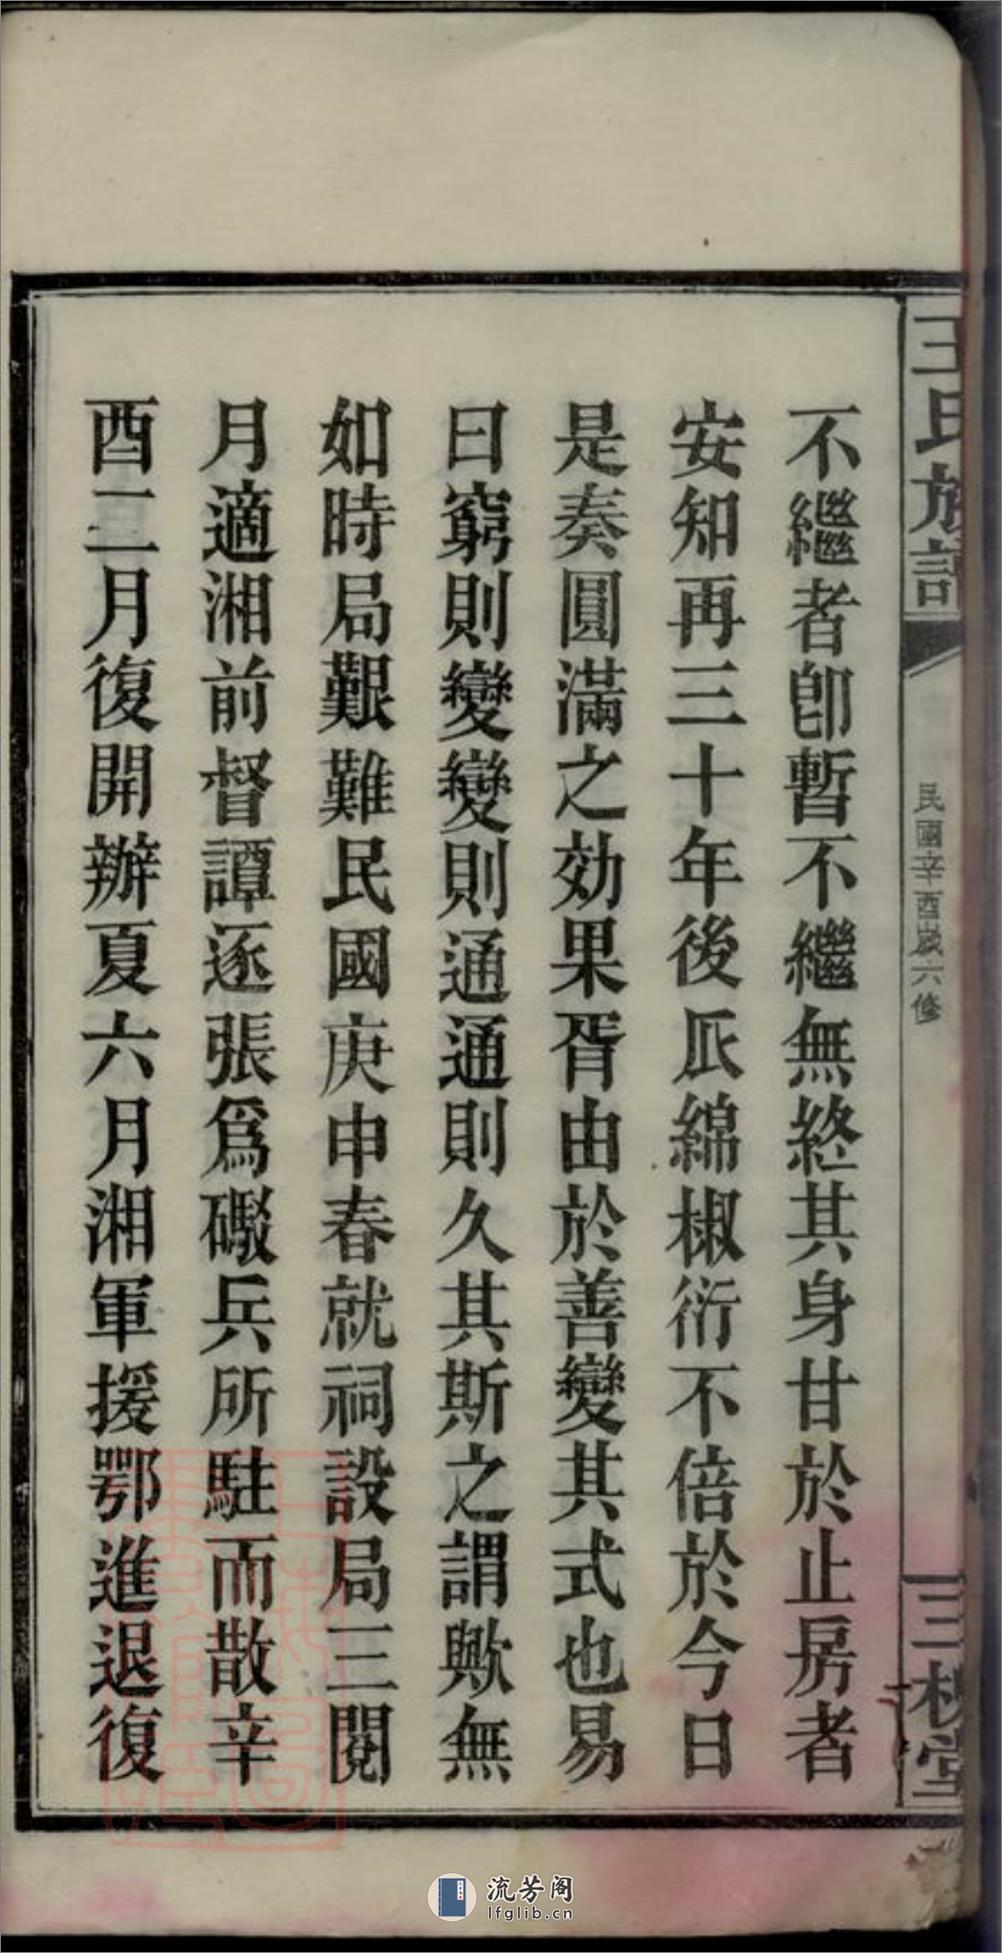 王氏族譜
民國辛酉歲六修
三槐堂
不繼者卽暫不繼無終其身甘於止房者
安知再三十年後瓜綿椒衍不倍於今日
是奏圓滿之効果胥由於善變其式也易
曰窮則變變則通通則久其斯之謂歟無
如時局艱難民國庚申春就祠設局三閱
月適湘前督譚逐張爲礮兵所駐而散辛
酉二月復開辦夏六月湘軍援鄂進退復
流芳阁
lfglib.cn